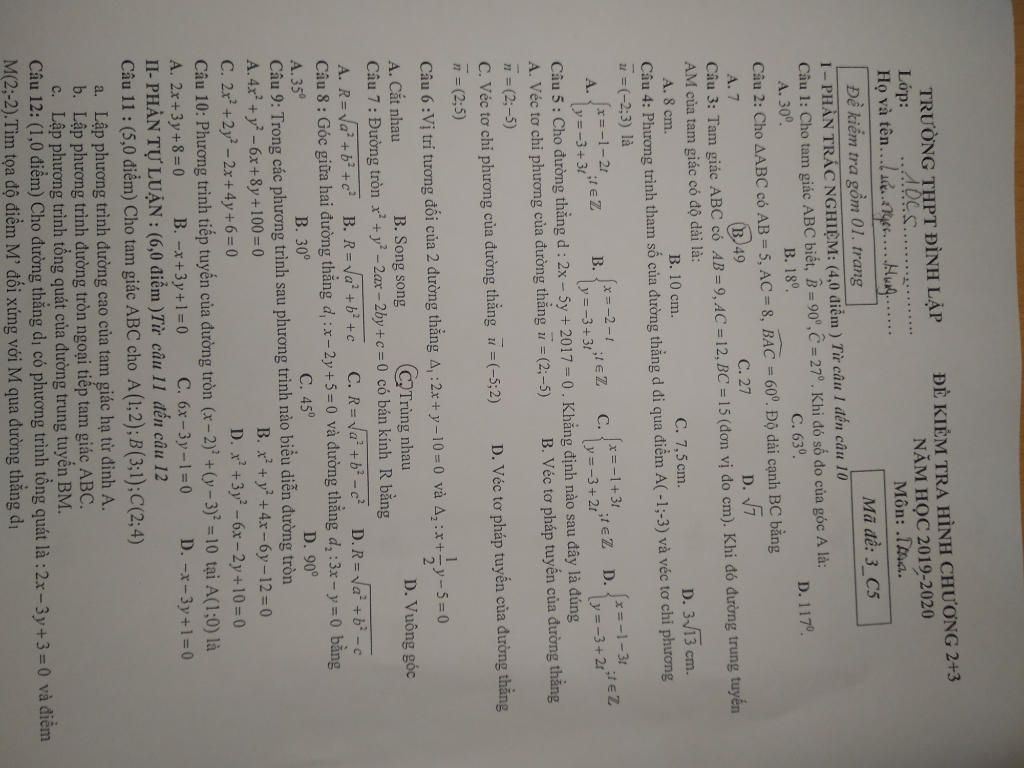 TRƯỜNG THPT ĐÌNH LẬP
ĐỀ KIỂM TRA HÌNH CHƯƠNG 2+3
NĂM HỌC 2019-2020
Lớp: ....10C5....
Môn: .Toán.
Họ và tên....
Đề kiểm tra gồm 01. trang
Mã đề: 3_C5
I – PHẦN TRẮC NGHIỆM: (4,0 điểm ) Từ câu 1 đến câu 10
Câu 1: Cho tam giác ABC biết, B̂ = 90⁰, Ĉ = 27⁰ . Khi đó số đo của góc A là:
A. 30⁰. B. 18⁰. C. 63⁰. D. 117⁰.
Câu 2: Cho ΔABC có AB = 5, AC = 8, BAC = 60⁰. Độ dài cạnh BC bằng
A. 7 B. 49 C. 27 D. √7
Câu 3: Tam giác ABC có AB = 9, AC = 12, BC = 15 (đơn vị đo cm). Khi đó đường trung tuyến
AM của tam giác có độ dài là:
A. 8 cm. B. 10 cm. C. 7,5 cm. D. 3√13 cm.
Câu 4: Phương trình tham số của đường thẳng d đi qua điểm A( -1;-3) và véc tơ chỉ phương
u = (-2;3) là
A. {x = -1 - 2t y = -3 + 3t ; t ∈ ℤ B. {x = -2 - t y = -3 + 3t ; t ∈ ℤ C. {x = -1 + 3t y = -3 + 2t ; t ∈ ℤ D. {x = -1 - 3t y = -3 + 2t ; t ∈ ℤ
Câu 5 : Cho đường thẳng d : 2x - 5y + 2017 = 0 . Khẳng định nào sau đây là đúng
A. Véc tơ chỉ phương của đường thẳng u = (2;-5) B. Véc tơ pháp tuyến của đường thẳng
n = (2;-5)
C. Véc tơ chỉ phương của đường thẳng u = (-5;2) D. Véc tơ pháp tuyến của đường thẳng
n = (2;5)
Câu 6 : Vị trí tương đối của 2 đường thẳng Δ₁ : 2x + y - 10 = 0 và Δ₂ : x + 1/2 y - 5 = 0
A. Cắt nhau B. Song song C. Trùng nhau D. Vuông góc
Câu 7 : Đường tròn x² + y² - 2ax - 2by + c = 0 có bán kính R bằng
A. R = √a² + b² + c² B. R = √a² + b² + c C. R = √a² + b² - c² D. R = √a² + b² - c
Câu 8 : Góc giữa hai đường thẳng d₁ : x - 2y + 5 = 0 và đường thẳng d₂ : 3x - y = 0 bằng
A.35⁰ B. 30⁰ C. 45⁰ D. 90⁰
Câu 9 : Trong các phương trình sau phương trình nào biểu diễn đường tròn
A. 4x² + y² - 6x + 8y + 100 = 0 B. x² + y² + 4x - 6y - 12 = 0
C. 2x² + 2y² - 2x + 4y + 6 = 0 D. x² + 3y² - 6x - 2y + 10 = 0
Câu 10: Phương trình tiếp tuyến của đường tròn (x - 2)² + (y - 3)² = 10 tại A(1;0) là
A. 2x + 3y - 8 = 0 B. -x + 3y + 1 = 0 C. 6x - 3y - 1 = 0 D. -x - 3y + 1 = 0
II- PHẦN TỰ LUẬN : (6,0 điểm )Từ câu 11 đến câu 12
Câu 11 : (5,0 điểm) Cho tam giác ABC cho A(1;2); B(3;1); C(2;4)
a. Lập phương trình đường cao của tam giác hạ từ đỉnh A.
b. Lập phương trình đường tròn ngoại tiếp tam giác ABC.
c. Lập phương trình tổng quát của đường trung tuyến BM.
Câu 12: (1,0 điểm) Cho đường thẳng d₁ có phương trình tổng quát là : 2x - 3y + 3 = 0 và điểm
M(2;-2).Tìm tọa độ điểm M' đối xứng với M qua đường thẳng d₁